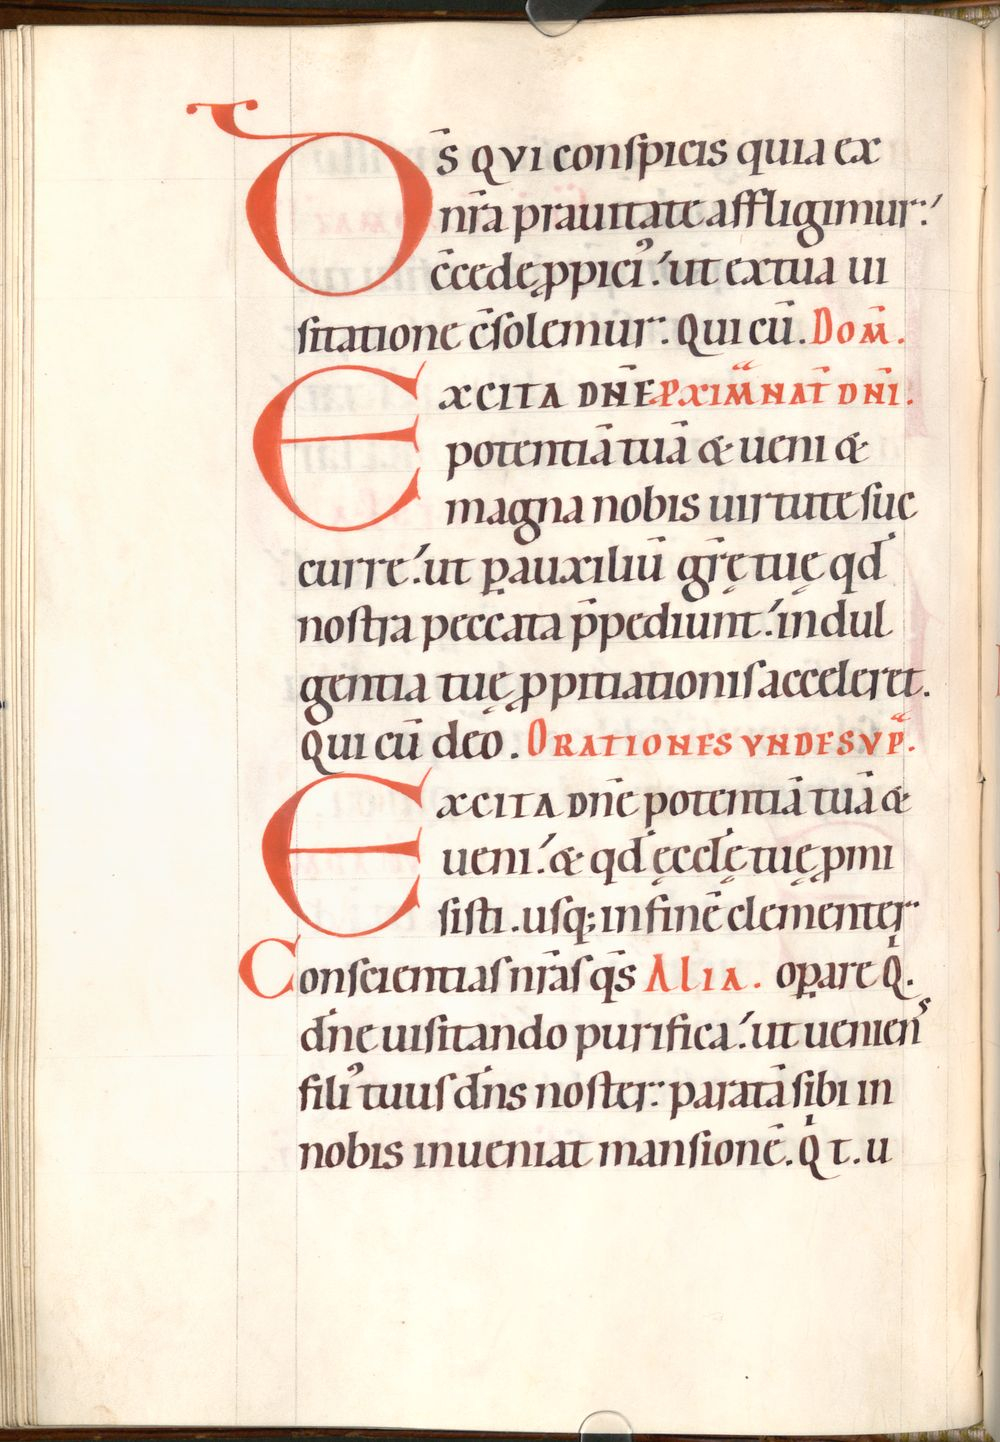 D̅S QVI conſpicis quia ex
nr̅a prauitate affligimur:
c̅cede ꝓpiciꝰ: ut ex tua ui
ſitatione c̅ſolemur: Qui cu̅. Dom̅.
EXCITA DN̅E PXIM̅ NAT̅ DN̅I.
potentia̅ tua̅ & ueni &
magna nobis uirtute ſuc
curre: ut ꝑ auxiliu̅ gr̅ę tuę qd̓
noſtra peccata p̅pediunt: indul
gentia tuę ꝓpitiationiſ acceleret.
Qui cu̅ deo. ORATIONES VNDE SVP̅.
EXCITA DN̅E potentia̅ tua̅ &
ueni: & qd̓ ęccl̅ę tuę ꝓmi
ſiſti. uſq; in fine̅ clementer
Conſcientiaſ nr̅aſ q̅s ALIA. opꝑare Q̓.
dn̅e uiſitando purifica: ut uenienˢ
filiꝰ tuuſ dn̅s noſter: parata̅ ſibi in
nobis inueniat manſione̅. Q̓ t. u